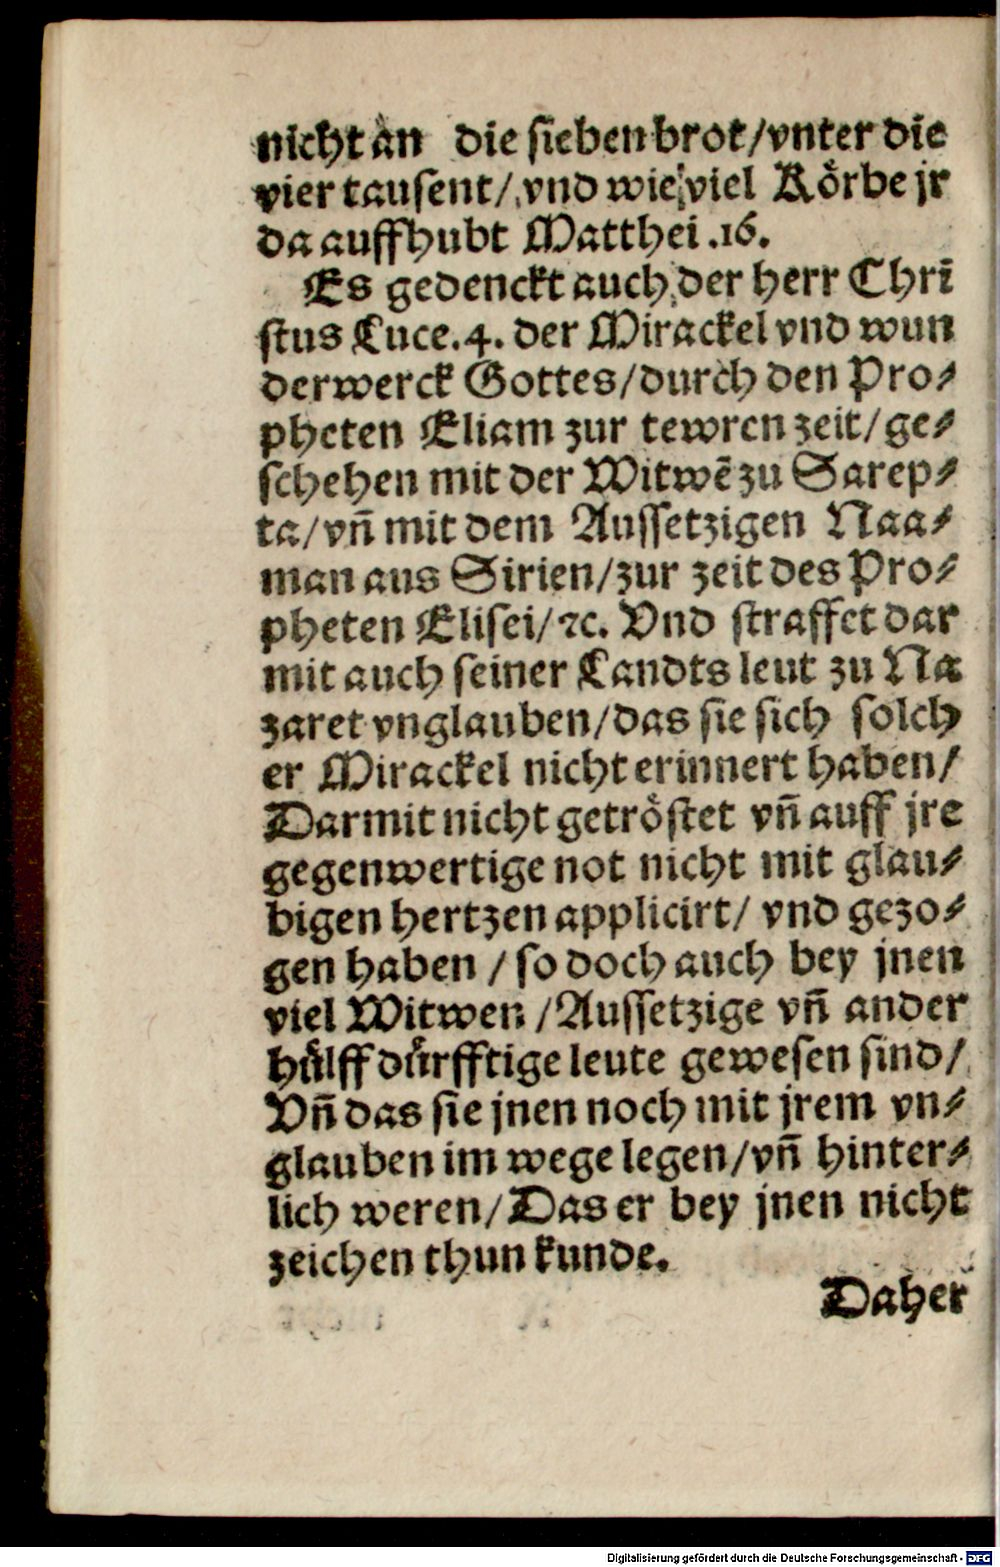 nicht an die sieben brot/vnter die
vier tausent/vnd wie viel Körbe jr
da auffhubt Matthei .16.
Es gedenckt auch der herr Chri
stus Luce.4. der Mirackel vnd wun
derwerck Gottes/durch den Pro⸗
pheten Eliam zur tewren zeit/ge⸗
schehen mit der Witwẽ zu Sarep⸗
ta/vñ mit dem Aussetzigen Naa⸗
man aus Sirien/zur zeit des Pro⸗
pheten Elisei/ꝛc. Vnd straffet dar
mit auch seiner Landts leut zu Na
zaret vnglauben/das sie sich solch
er Mirackel nicht erinnert haben/
Darmit nicht getröstet vñ auff jre
gegenwertige not nicht mit glau⸗
bigen hertzen applicirt/ vnd gezo⸗
gen haben / so doch auch bey jnen
viel Witwen /Aussetzige vñ ander
hülff dürfftige leute gewesen sind/
Vñ das sie jnen noch mit jrem vn⸗
glauben im wege legen/vñ hinter⸗
lich weren/Das er bey jnen nicht
zeichen thun kunde.
Daher
Digitalisierung gefördert durch die Deutsche Forschungsgemeinschaft - DFG